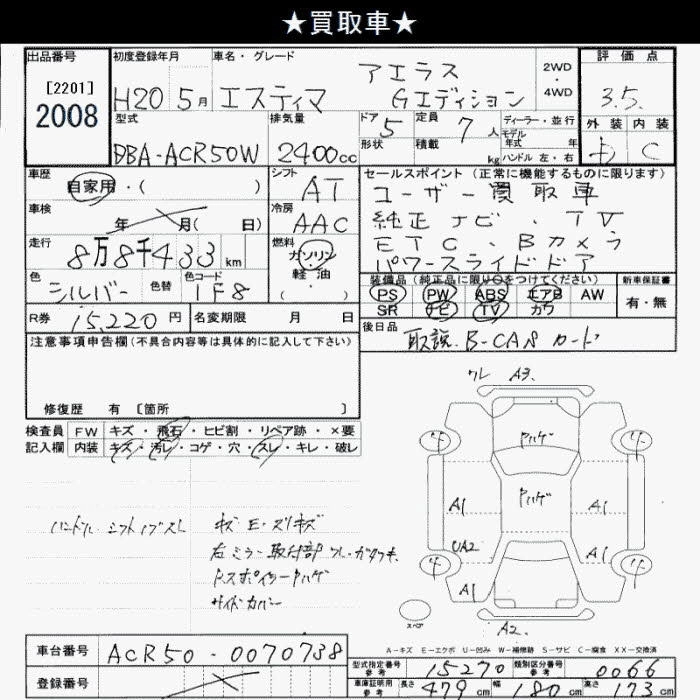 ★買取車★
出品番号 初度登録年月 車名・グレード 2WD・4WD 評価点
[2201]
2008
H20 5月 エスティマ アエラス Gエディション 3.5
型式 排気量 ドア 5 定員 7人 ディーラー・並行 外装 内装
形状 積載 kg モデル年式 年式 ハンドル 左・右
DBA-ACR50W 2400cc C
車歴 シフト セールスポイント (正常に機能するものに限ります)
自家用・( ) AT ユーザー買取車
車検 冷房 純正ナビ・TV
年 月( 日) AAC ETC・Bカメラ
走行 燃料 パワースライドドア
8万8千433km ガソリン
軽油
( )
色 色替 色コード 装備品 (純正品に限り○をつけてください) 新車保証書
シルバー 1F8 PS PW ABS エアB AW 有・無
SR ナビ TV カワ
R券 15,220円 名変期限 月 日 後日品
取説.B-CASカード
注意事項申告欄(不具合内容等は具体的に記入して下さい)
修復歴 有 [箇所 ]
検査員 FW キズ・飛石・ヒビ割・リペア跡・×要
記入欄 内装 キズ・汚レ・コゲ・穴・スレ・キレ・破レ
ワレ A3.
4 4
Pハゲ
Pハゲ
A1 A1
UA2 A1
4 4
A1
スペア
A2.
ハンドル シフトノブスレ
キズ E・スリキズ
右ミラー取付部ワレ・ガタツキ
RスポイラーPハゲ
サイドカバー
A-キズ E-エクボ U-凹み W-補修跡 S-サビ C-腐食 XX-交換済
車台番号 ACR50-0070738
登録番号
型式指定番号 参考 15270 類別区分番号 参考 0066
車庫証明用 参考 長さ 479cm 幅 180cm 高さ 173cm